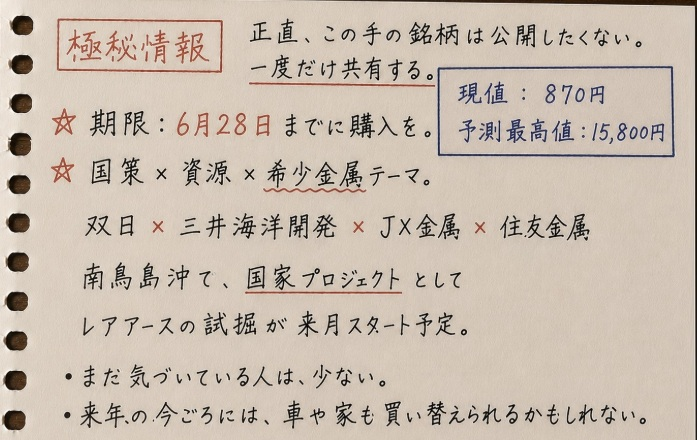 極秘情報
正直、この手の銘柄は公開したくない。
一度だけ共有する。
現値：870円
予測最高値：15,800円
☆ 期限：6月28日までに購入を。
☆ 国策×資源×希少金属テーマ。
双日×三井海洋開発×JX金属×住友金属
南鳥島沖で、国家プロジェクトとして
レアアースの試掘が来月スタート予定。
・まだ気づいている人は、少ない。
・来年の今ごろには、車や家も買い替えられるかもしれない。